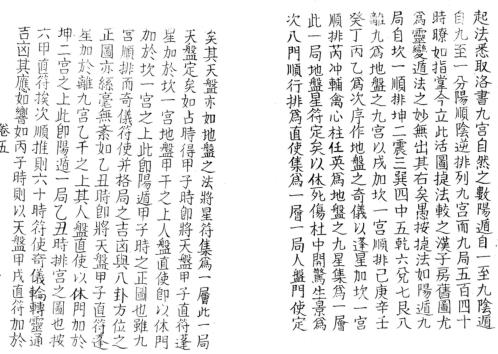 起法悉取洛書九宮自然之數陽遁自一至九陰遁
自九至一分陽順陰逆排列九宮而九局五百四十
時瞭如指掌今立此活圖捷法較之漢子房舊圖尤
為靈變遁法之妙無出其右矣愚按捷法如陽遁九
局自坎一順排坤二震三巽四中五乾六兌七艮八
離九為地盤之九宮以戊加坎一宮順排己庚辛壬
癸丁丙乙為次序作地盤之奇儀以逢星加坎一宮
順排芮冲輔禽心柱任英為地盤之九星集為一層
此一局地盤星符定矣以休死傷杜中開驚生景為
次八門順行排為直使集為一層一局人盤門使定
矣其天盤亦如地盤之法將星符集為一層此一局
天盤定矣如占時得甲子時即將天盤甲子直符逢
星加於坎一宮地盤甲子之上人盤直使即以休門
加於坎一宮之上此即陽遁甲子時之正圖也雖九
宮順排而奇儀符使并格局之吉凶與八卦方位之
正圖亦絲毫無紊如乙丑時即將天盤甲子直符逢
星加於離九宮乙干之上其人盤直使以休門加於
坤二宮之上此即陽遁一局乙丑時排宮之圖也按
六甲直符挨次順推則六十時符使奇儀輪轉靈通
吉凶其應如響如丙子時則以天盤甲戌直符加於
卷五